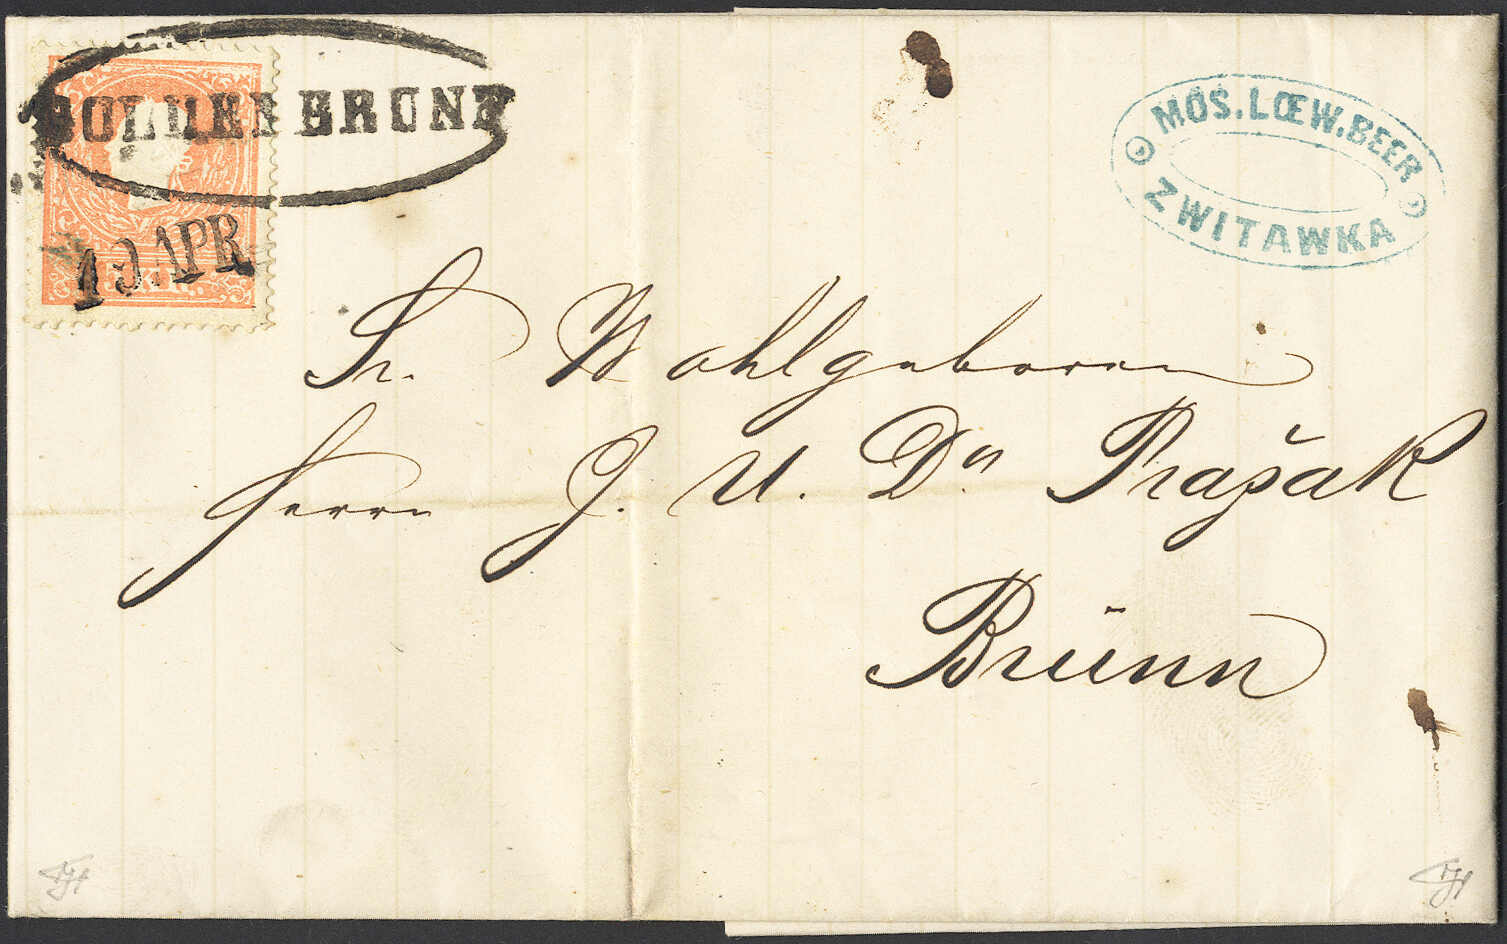 GOLDENBRUNN
19. APR.
5 KR.
MOS. LŒW. BEER
ZWITAWKA
Sr. Wohlgeboren
Herrn J. U. Dr. Pražak
Brünn